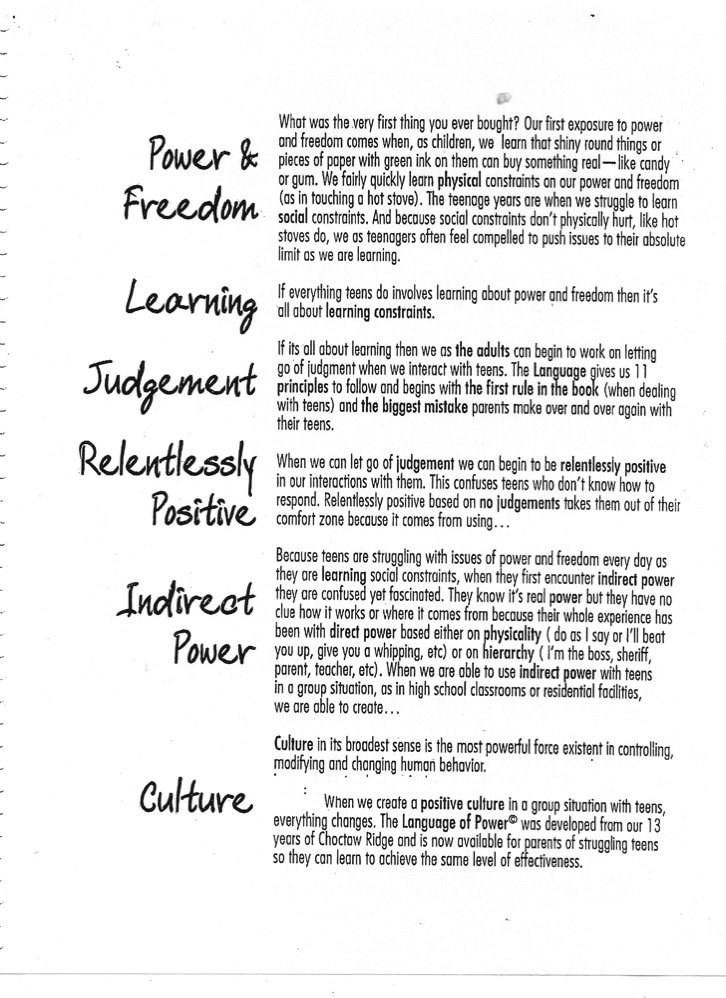 Power &
Freedom
What was the very first thing you ever bought? Our first exposure to power
and freedom comes when, as children, we learn that shiny round things or
pieces of paper with green ink on them can buy something real—like candy
or gum. We fairly quickly learn physical constraints on our power and freedom
(as in touching a hot stove). The teenage years are when we struggle to learn
social constraints. And because social constraints don't physically hurt, like hot
stoves do, we as teenagers often feel compelled to push issues to their absolute
limit as we are learning.
Learning
If everything teens do involves learning about power and freedom then it's
all about learning constraints.
Judgement
If its all about learning then we as the adults can begin to work on letting
go of judgment when we interact with teens. The Language gives us 11
principles to follow and begins with the first rule in the book (when dealing
with teens) and the biggest mistake parents make over and over again with
their teens.
Relentlessly
Positive
When we can let go of judgement we can begin to be relentlessly positive
in our interactions with them. This confuses teens who don't know how to
respond. Relentlessly positive based on no judgements takes them out of their
comfort zone because it comes from using...
Indirect
Power
Because teens are struggling with issues of power and freedom every day as
they are learning social constraints, when they first encounter indirect power
they are confused yet fascinated. They know it's real power but they have no
clue how it works or where it comes from because their whole experience has
been with direct power based either on physicality ( do as I say or I'll beat
you up, give you a whipping, etc) or on hierarchy ( I'm the boss, sheriff,
parent, teacher, etc). When we are able to use indirect power with teens
in a group situation, as in high school classrooms or residential facilities,
we are able to create...
Culture
Culture in its broadest sense is the most powerful force existent in controlling,
modifying and changing human behavior.
When we create a positive culture in a group situation with teens,
everything changes. The Language of Power© was developed from our 13
years of Choctaw Ridge and is now available for parents of struggling teens
so they can learn to achieve the same level of effectiveness.